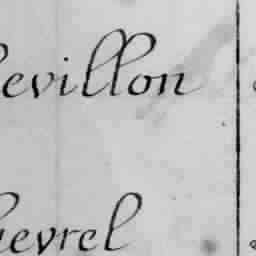 hevillon
hevrel